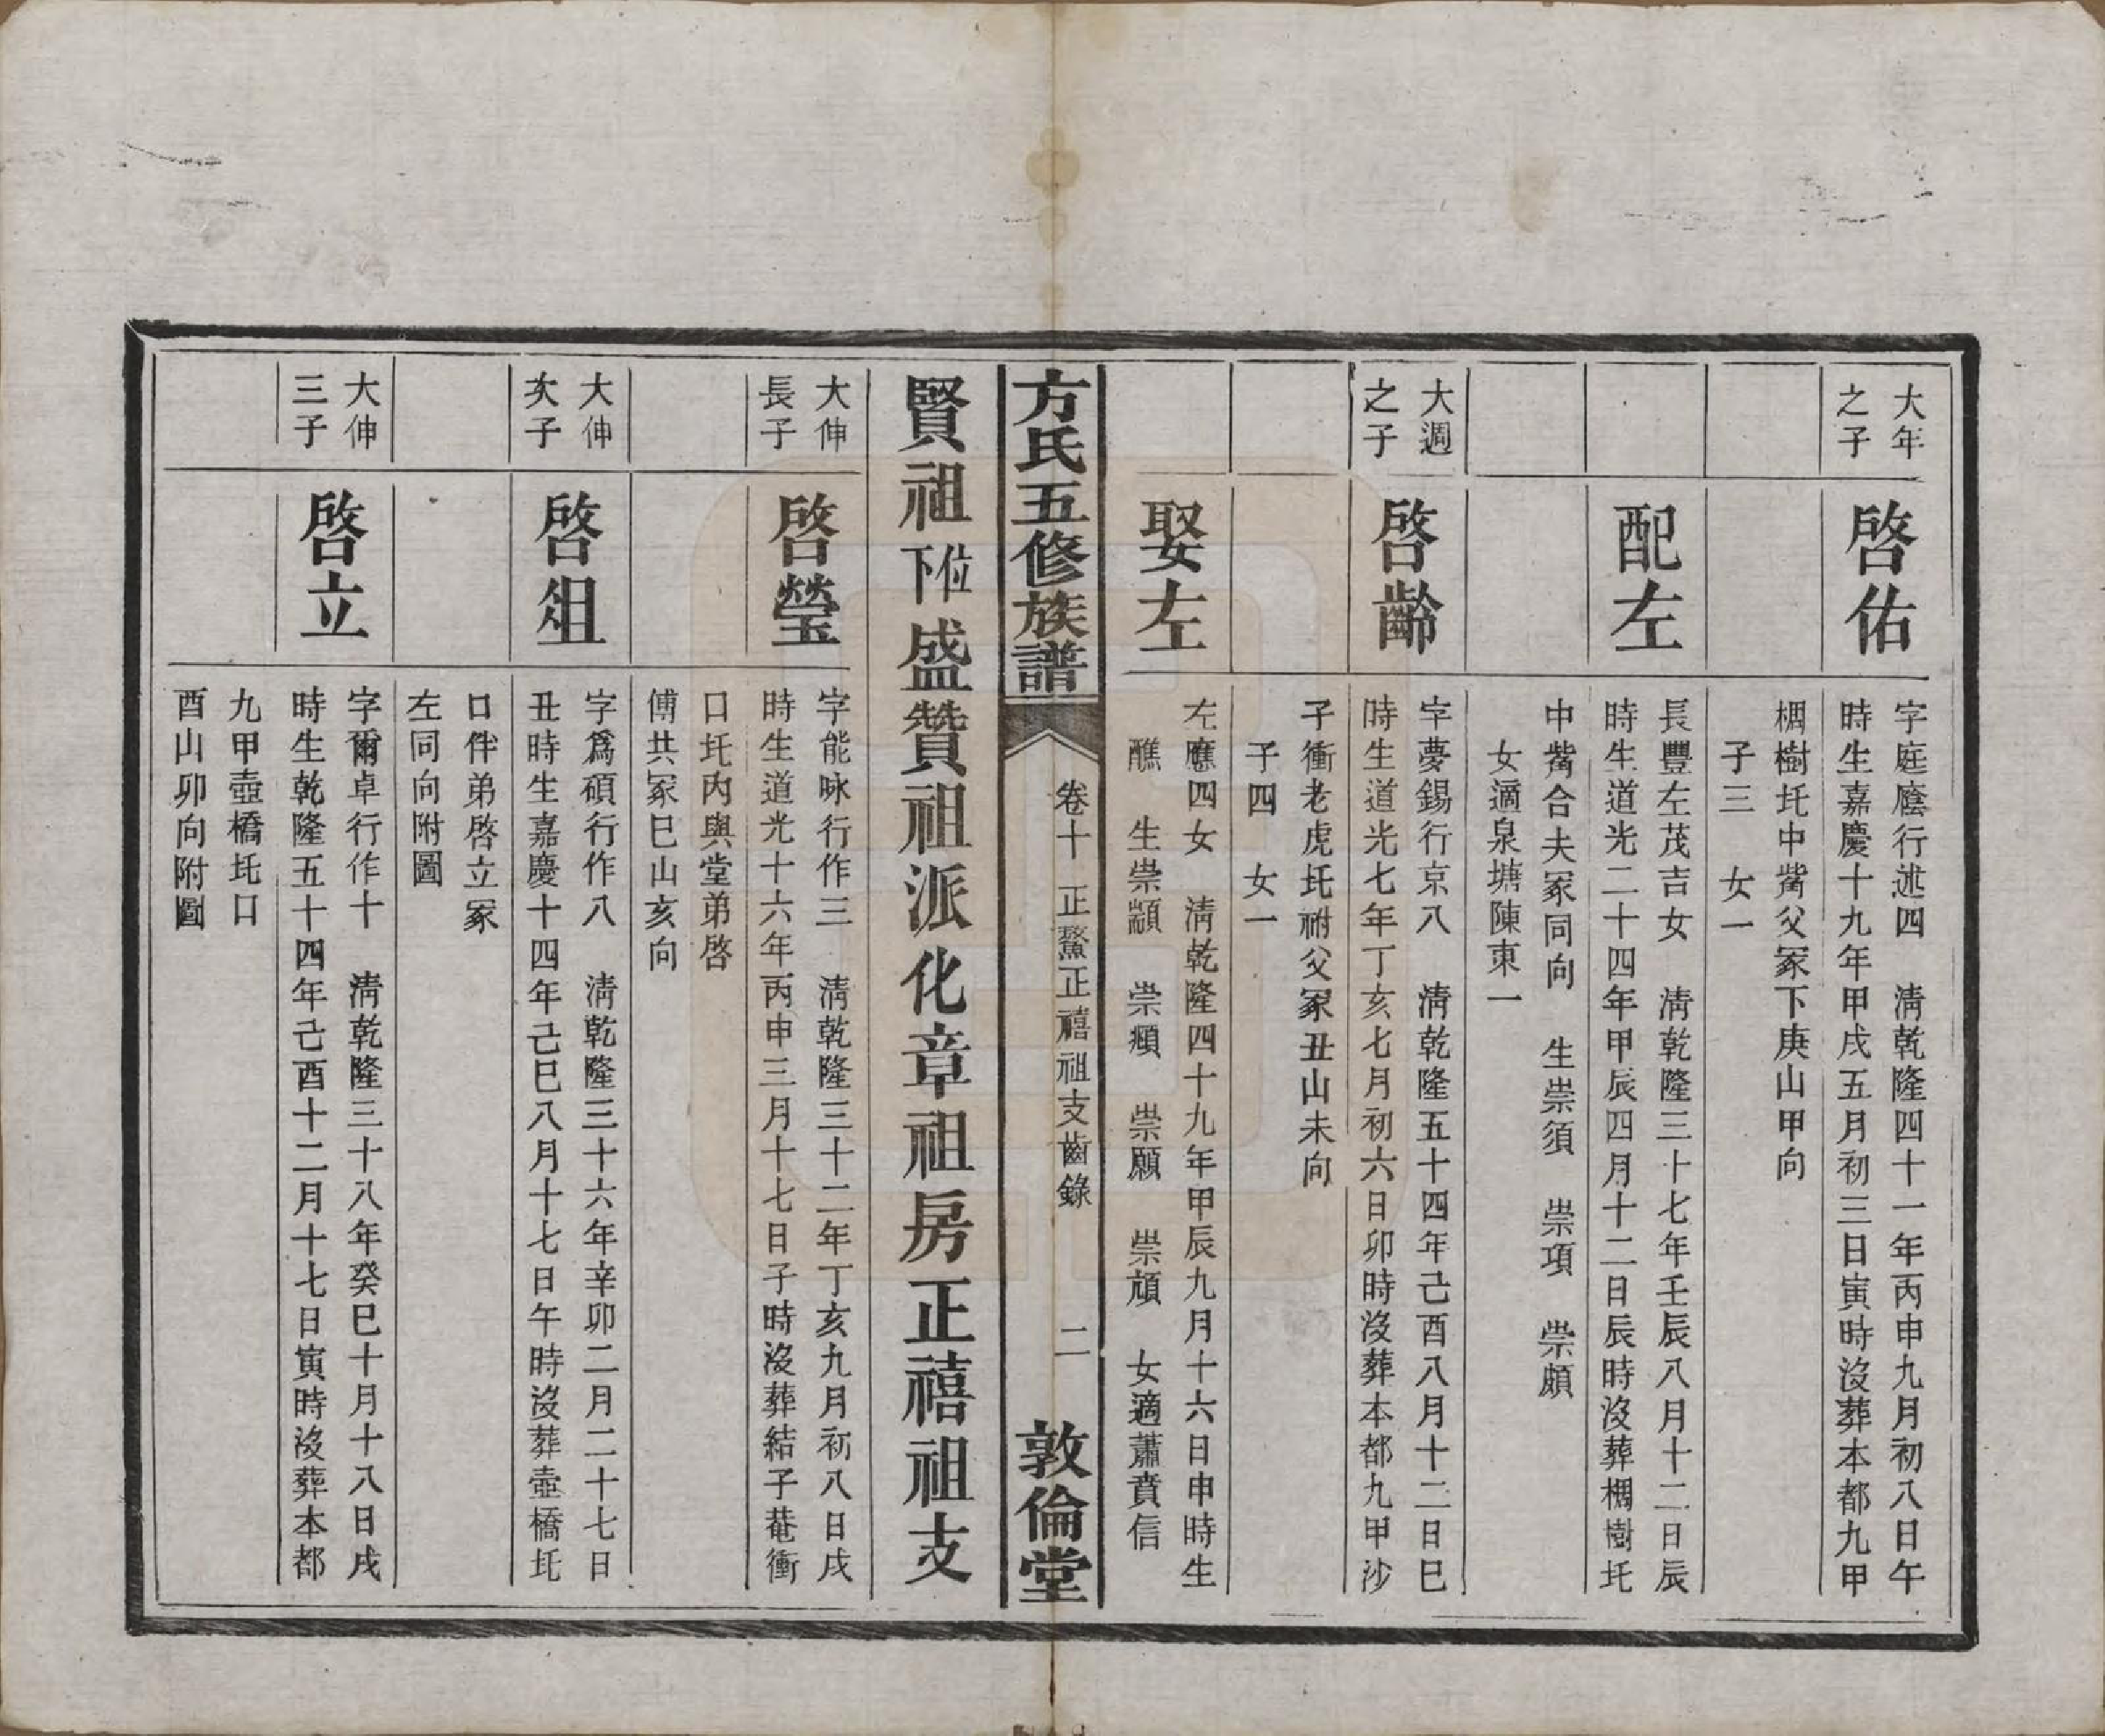 大年
之子
啓佑
字庭廕行述四　淸乾隆四十一年丙申九月初八日午
時生嘉慶十九年甲戌五月初三日寅時沒葬本都九甲
椆樹圫中觜父冢下庚山甲向
子三　女一
配左
長豐左茂吉女　淸乾隆三十七年壬辰八月十二日辰
時生道光二十四年甲辰四月十二日辰時沒葬椆樹圫
中觜合夫冢同向　生崇須　崇項　崇頗
女適泉塘陳東一
大週
之子
啓齡
字夢錫行京八　淸乾隆五十四年己酉八月十二日巳
時生道光七年丁亥七月初六日卯時沒葬本都九甲沙
子衝老虎圫祔父冢丑山未向
子四　女一
娶左
左應四女　淸乾隆四十九年甲辰九月十六日申時生
醮　生崇顓　崇顺　崇願　崇頎　女適蕭賁信
方氏五修族譜
卷十　正鰲正禧祖支齒錄
二
敦倫堂
賢祖位下盛贊祖派化章祖房正禧祖支
大伸
長子
啓瑩
字能咏行作三　淸乾隆三十二年丁亥九月初八日戌
時生道光十六年丙申三月十七日子時沒葬結子菴衝
口圫內與堂弟啓
傅共冢巳山亥向
大伸
次子
啓俎
字爲碩行作八　淸乾隆三十六年辛卯二月二十七日
丑時生嘉慶十四年己巳八月十七日午時沒葬壺橋圫
口伴弟啓立冢
左同向附圖
大伸
三子
啓立
字爾卓行作十　淸乾隆三十八年癸巳十月十八日戌
時生乾隆五十四年己酉十二月十七日寅時沒葬本都
九甲壺橋圫口
酉山卯向附圖